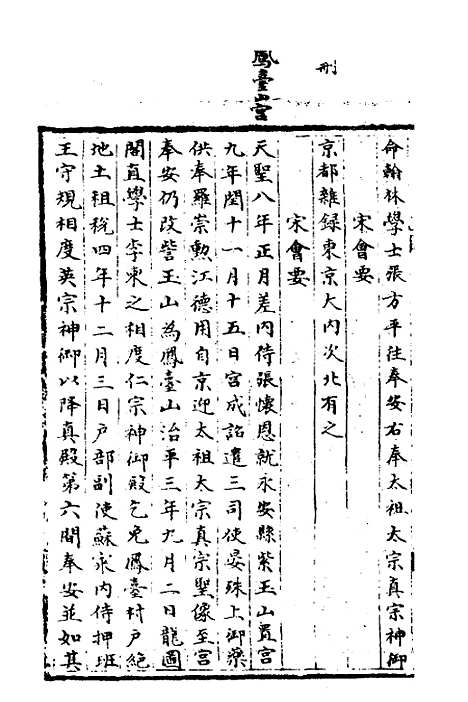 刑
鳳臺山宮
命翰林學士張方平往奉安右奉太祖太宗真宗神御
宋會要
京都雜録東京大内次北有之
宋會要
天聖八年正月差内侍張懷恩就永安縣紫玉山置宮
九年閏十一月十五日宮成詔遣三司使晏殊上御藥
供奉羅崇勳江德用自京迎太祖太宗真宗聖像至宮
奉安仍改訾王山為鳳臺山治平三年九月二日龍圖
閣直學士李柬之相度仁宗神御殿乞免鳳臺村戶絶
地土租稅四年十二月三日戶部副使蘇寀内侍押班
王守規相度英宗神御以降真殿第六間奉安並如其